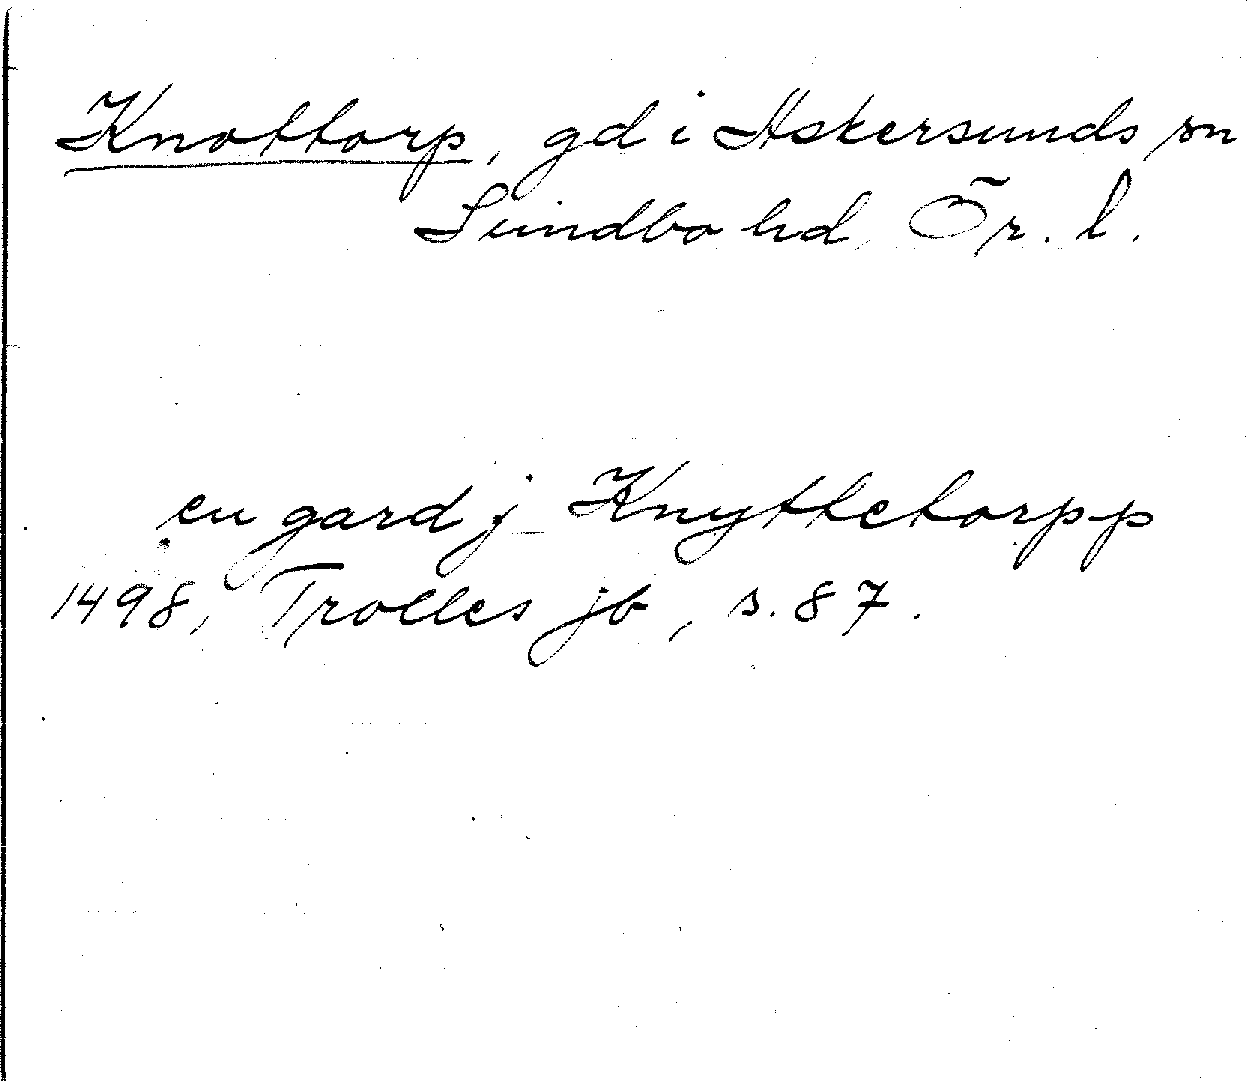 Knottorp, gd i Askersunds sn
Sundbo hd, Ör. l.
en gard j Knyttetorpp
1498, Trolles jb, s. 87.